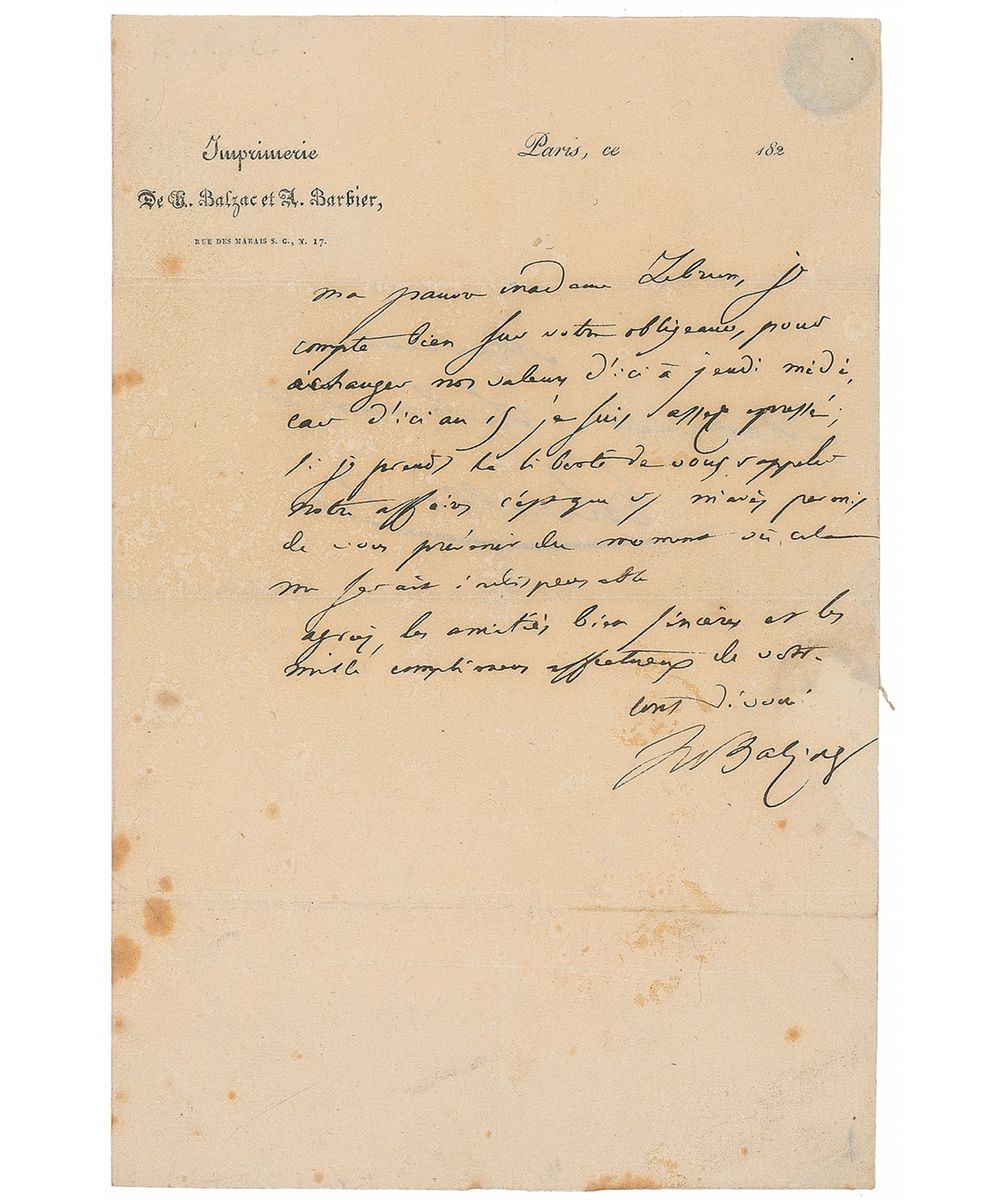 Imprimerie
De H. Balzac et A. Barbier,
RUE DES MARAIS S. G., N. 17.
Paris, ce 182
ma pauvre madame Lebrun, je
compte bien sur votre obligeance, pour
échanger nos valeurs d'ici à jeudi midi,
car d'ici au 15 je suis assez pressé;
si je prends la liberté de vous rappeler
notre affaire, c'est que vs m'avez permis
de vous prévenir du moment où cela
me serait indispensable
agréez les amitiés bien sincères et les
mille complimens affectueux de votre
tout dévoué
Balzac